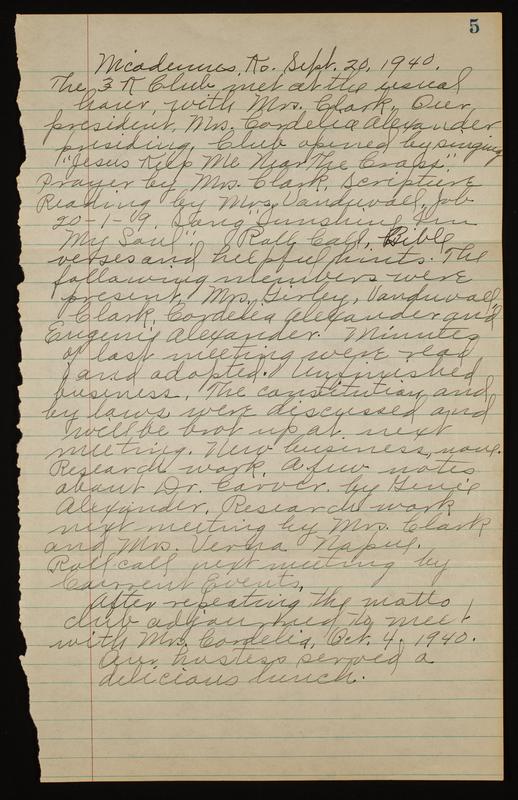 5
Nicodemus, Ks. Sept. 20, 1940.
The 3 R Club met at the usual
hour, with Mrs. Clark. Our
president, Mrs. Cordelia Alexander
presiding, Club opened by singing
"Jesus Keep Me Near The Cross".
Prayer by Mrs. Clark, Scripture
Reading by Mrs. Vanduvall, Job
20-1-19. Song "Sunshine In
My Soul". Roll Call, Bible
verses and helpful hints. The
following members were
present, Mrs. Girley, Vanduvall,
Clark, Cordelia Alexander and
Eugenie Alexander. Minutes
of last meeting were read
and adopted. Unfinished
business, The constitution and
by laws were discussed and
will be brot up at next
meeting. New business, none.
Research work, A few notes
about Dr. Carver. by Genie
Alexander. Research work
next meeting by Mrs. Clark
and Mrs. Verna Napue.
Roll call next meeting by
Current Events.
After repeating the motto
club adjourned to meet
with Mrs. Cordelia, Oct. 4, 1940.
Our hostess served a
delicious lunch.